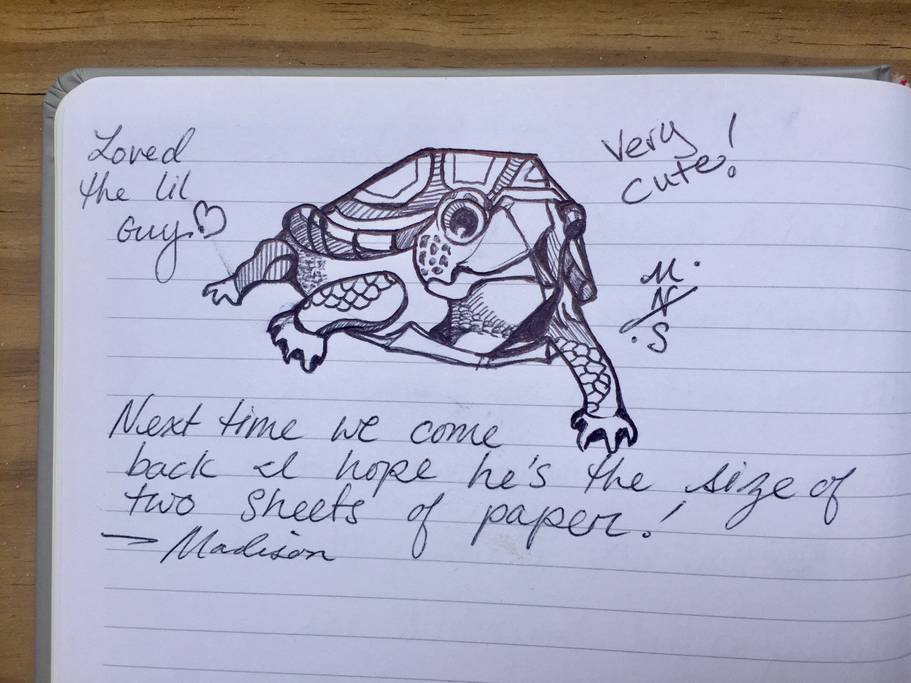 Loved
the lil
Guy ♡
Very
cute!
M.
N
.S
Next time we come
back I hope he's the size of
two sheets of paper!
— Madison